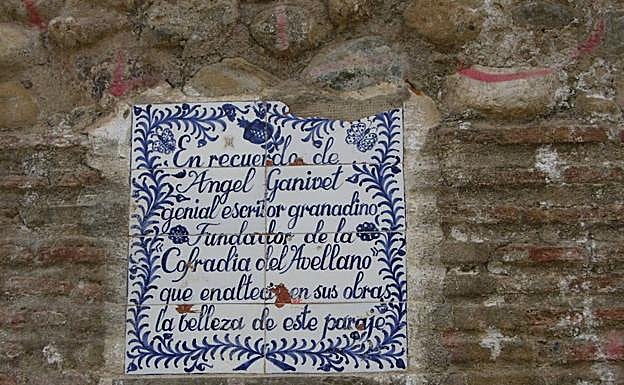 En recuerdo de
Angel Ganivet
genial escritor granadino
Fundador de la
"Cofradía del Avellano"
que enalteció en sus obras
la belleza de este paraje